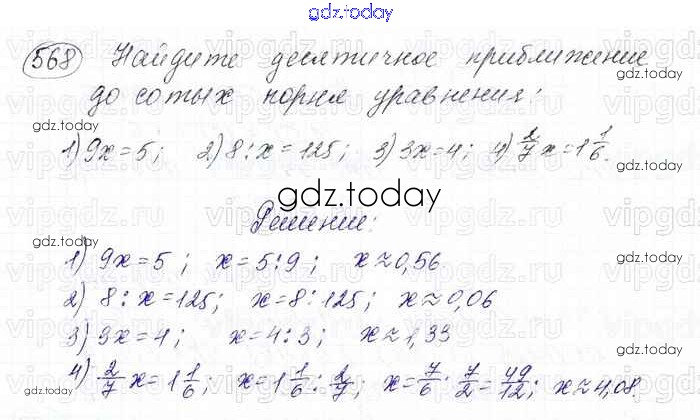 gdz.today
568 Найдите десятичное приближение
до сотых корня уравнения:
gdz.today
1) 9x = 5; 2) 8 : x = 125; 3) 3x = 4; 4) 2/7 x = 1 1/6.
gdz.today
gdz.today
Решение:
gdz.today
gdz.today
1) 9x = 5; x = 5 : 9; x ≈ 0,56
2) 8 : x = 125; x = 8 : 125; x ≈ 0,06
gdz.today
3) 3x = 4; x = 4 : 3; x ≈ 1,33
4) 2/7 x = 1 1/6; x = 1 1/6 : 2/7; x = 7/6 · 7/2 = 49/12; x ≈ 4,08.
gdz.today
gdz.today